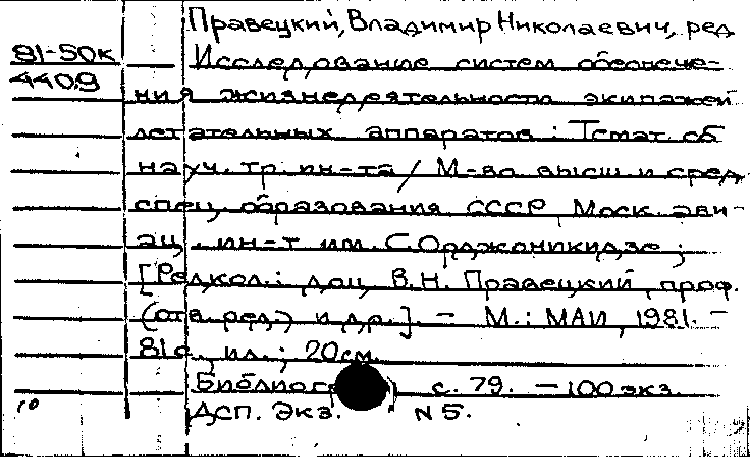 Правецкий, Владимир Николаевич, ред.
81-50к Исследование систем обеспече-
4409 ния жизнедеятельности экипажей
летательных аппаратов : Темат. сб
науч. тр. ин-та / М-во высш и сред
спец. образования СССР, Моск. ави-
ац. ин-т им. С. Орджоникидзе ;
[Редкол.: доц. В.Н. Правецкий, проф.
(отв. ред.) и др.]. - М.: МАИ, 1981. -
81 с., ил. ; 20 см.
Библиогр с. 79. - 100 экз.
10 Дсп. Экз. N 5.